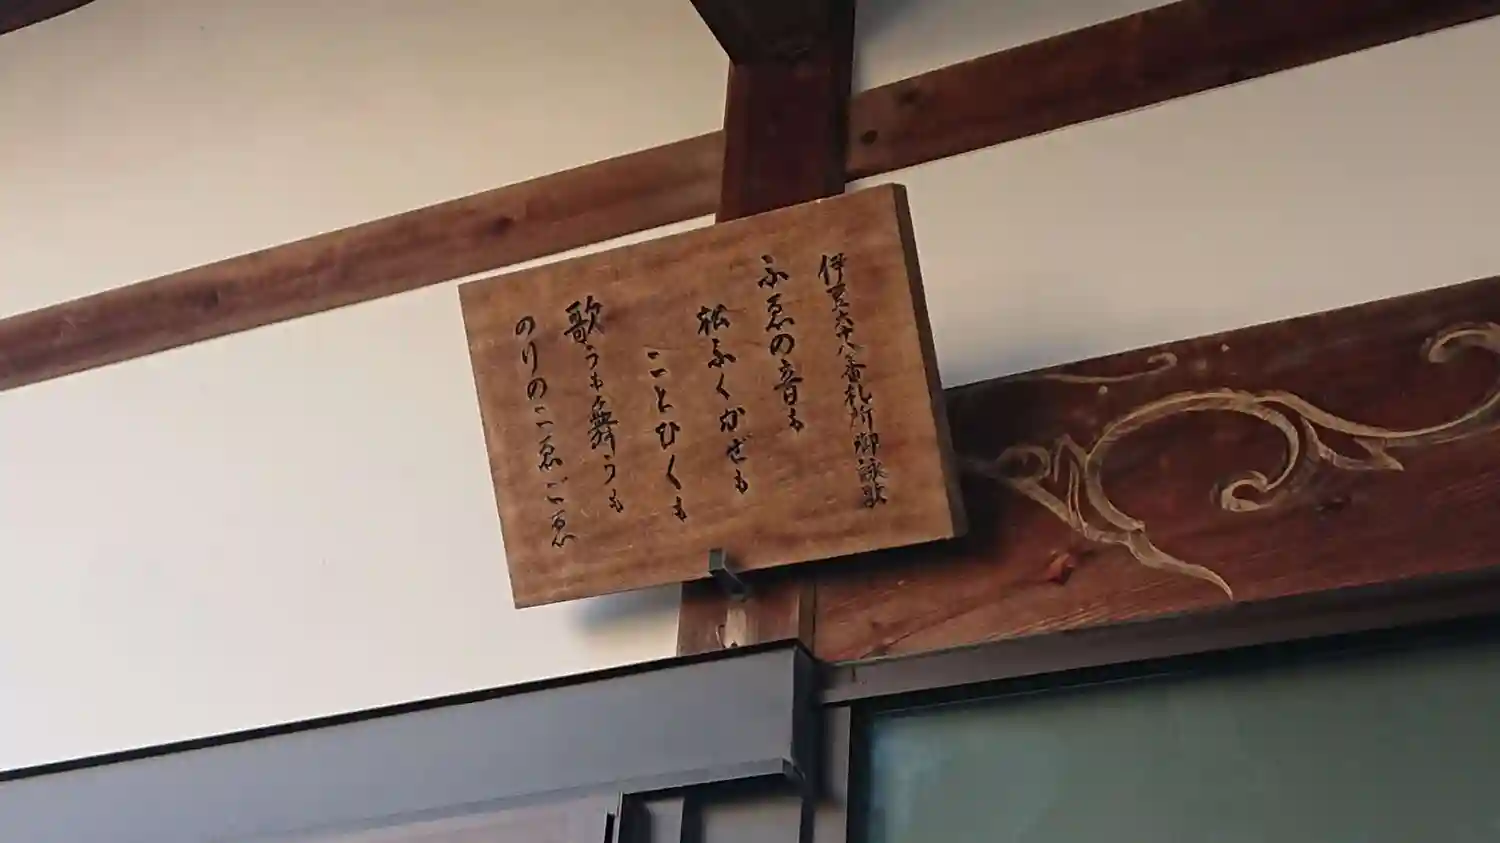 伊豆六十八番札所御詠歌
ふゑの音も
松ふくかぜも
ことひくも
歌うも舞うも
のりのこゑごゑ